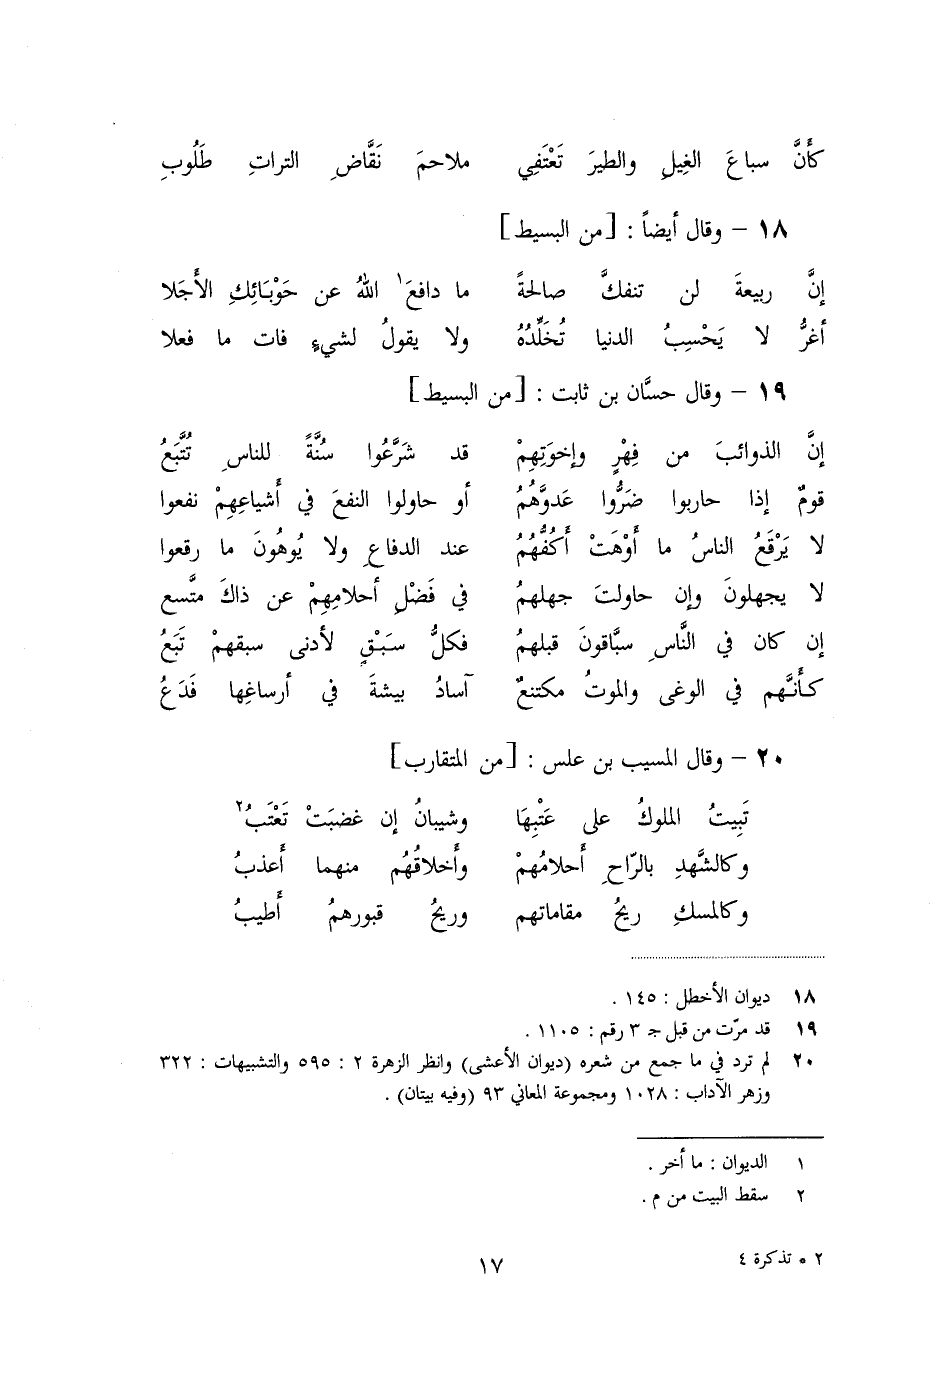 كأَنَّ سباعَ الغِيلِ والطيرَ تَعْتَفِي ملاحمَ نَقَّاضِ التراتِ طَلُوبِ
١٨ – وقال أيضاً : [من البسيط]
إنَّ ربيعةَ لن تنفكَّ صالحةً ما دافعَ١ اللهُ عن حَوْبَائِكِ الأَجَلا
أغرُّ لا يَحْسِبُ الدنيا تُخَلِّدُهُ ولا يقولُ لشيءٍ فات ما فعلا
١٩ – وقال حسَّان بن ثابت : [من البسيط]
إنَّ الذوائبَ من فِهْرٍ وإخوَتِهِمْ قد شَرَّعُوا سُنَّةً للناسِ تُتَّبَعُ
قومٌ إذا حاربوا ضَرُّوا عَدوَّهُمُ أو حاولوا النفعَ في أَشياعِهِمْ نفعوا
لا يَرْقَعُ الناسُ ما أَوْهَتْ أَكُفُّهُمُ عند الدفاعِ ولا يُوهُونَ ما رقعوا
لا يجهلونَ وإن حاولتَ جهلهمُ في فَضْلِ أحلامِهِمْ عن ذاكَ متَّسع
إن كان في النَّاسِ سبَّاقونَ قبلهمُ فكلُّ سَبَقٍ لأدنى سبقهمْ تَبَعُ
كأَنَّهم في الوغى والموتُ مكتنعٌ آسادُ بيشةَ في أرساغِها فَدَعُ
٢٠ – وقال المسيب بن علس : [من المتقارب]
تَبِيتُ الملوكُ على عَتْبِهَا وشيبانُ إن غضبَتْ تَعْتَبُ٢
وكالشَّهدِ بالرّاحِ أَحلامُهمْ وأَخلاقُهُم منهما أَعذبُ
وكالمسكِ ريحُ مقاماتهم وريحُ قبورهمُ أَطيبُ
١٨ ديوان الأخطل : ١٤٥ .
١٩ قد مرّت من قبل جـ ٣ رقم : ١١٠٥ .
٢٠ لم ترد في ما جمع من شعره (ديوان الأعشى) وانظر الزهرة ٢ : ٥٩٥ والتشبيهات : ٣٢٢
وزهر الآداب : ١٠٢٨ ومجموعة المعاني ٩٣ (وفيه بيتان) .
١ الديوان : ما أخر .
٢ سقط البيت من م .
٢ * تذكرة ٤
١٧